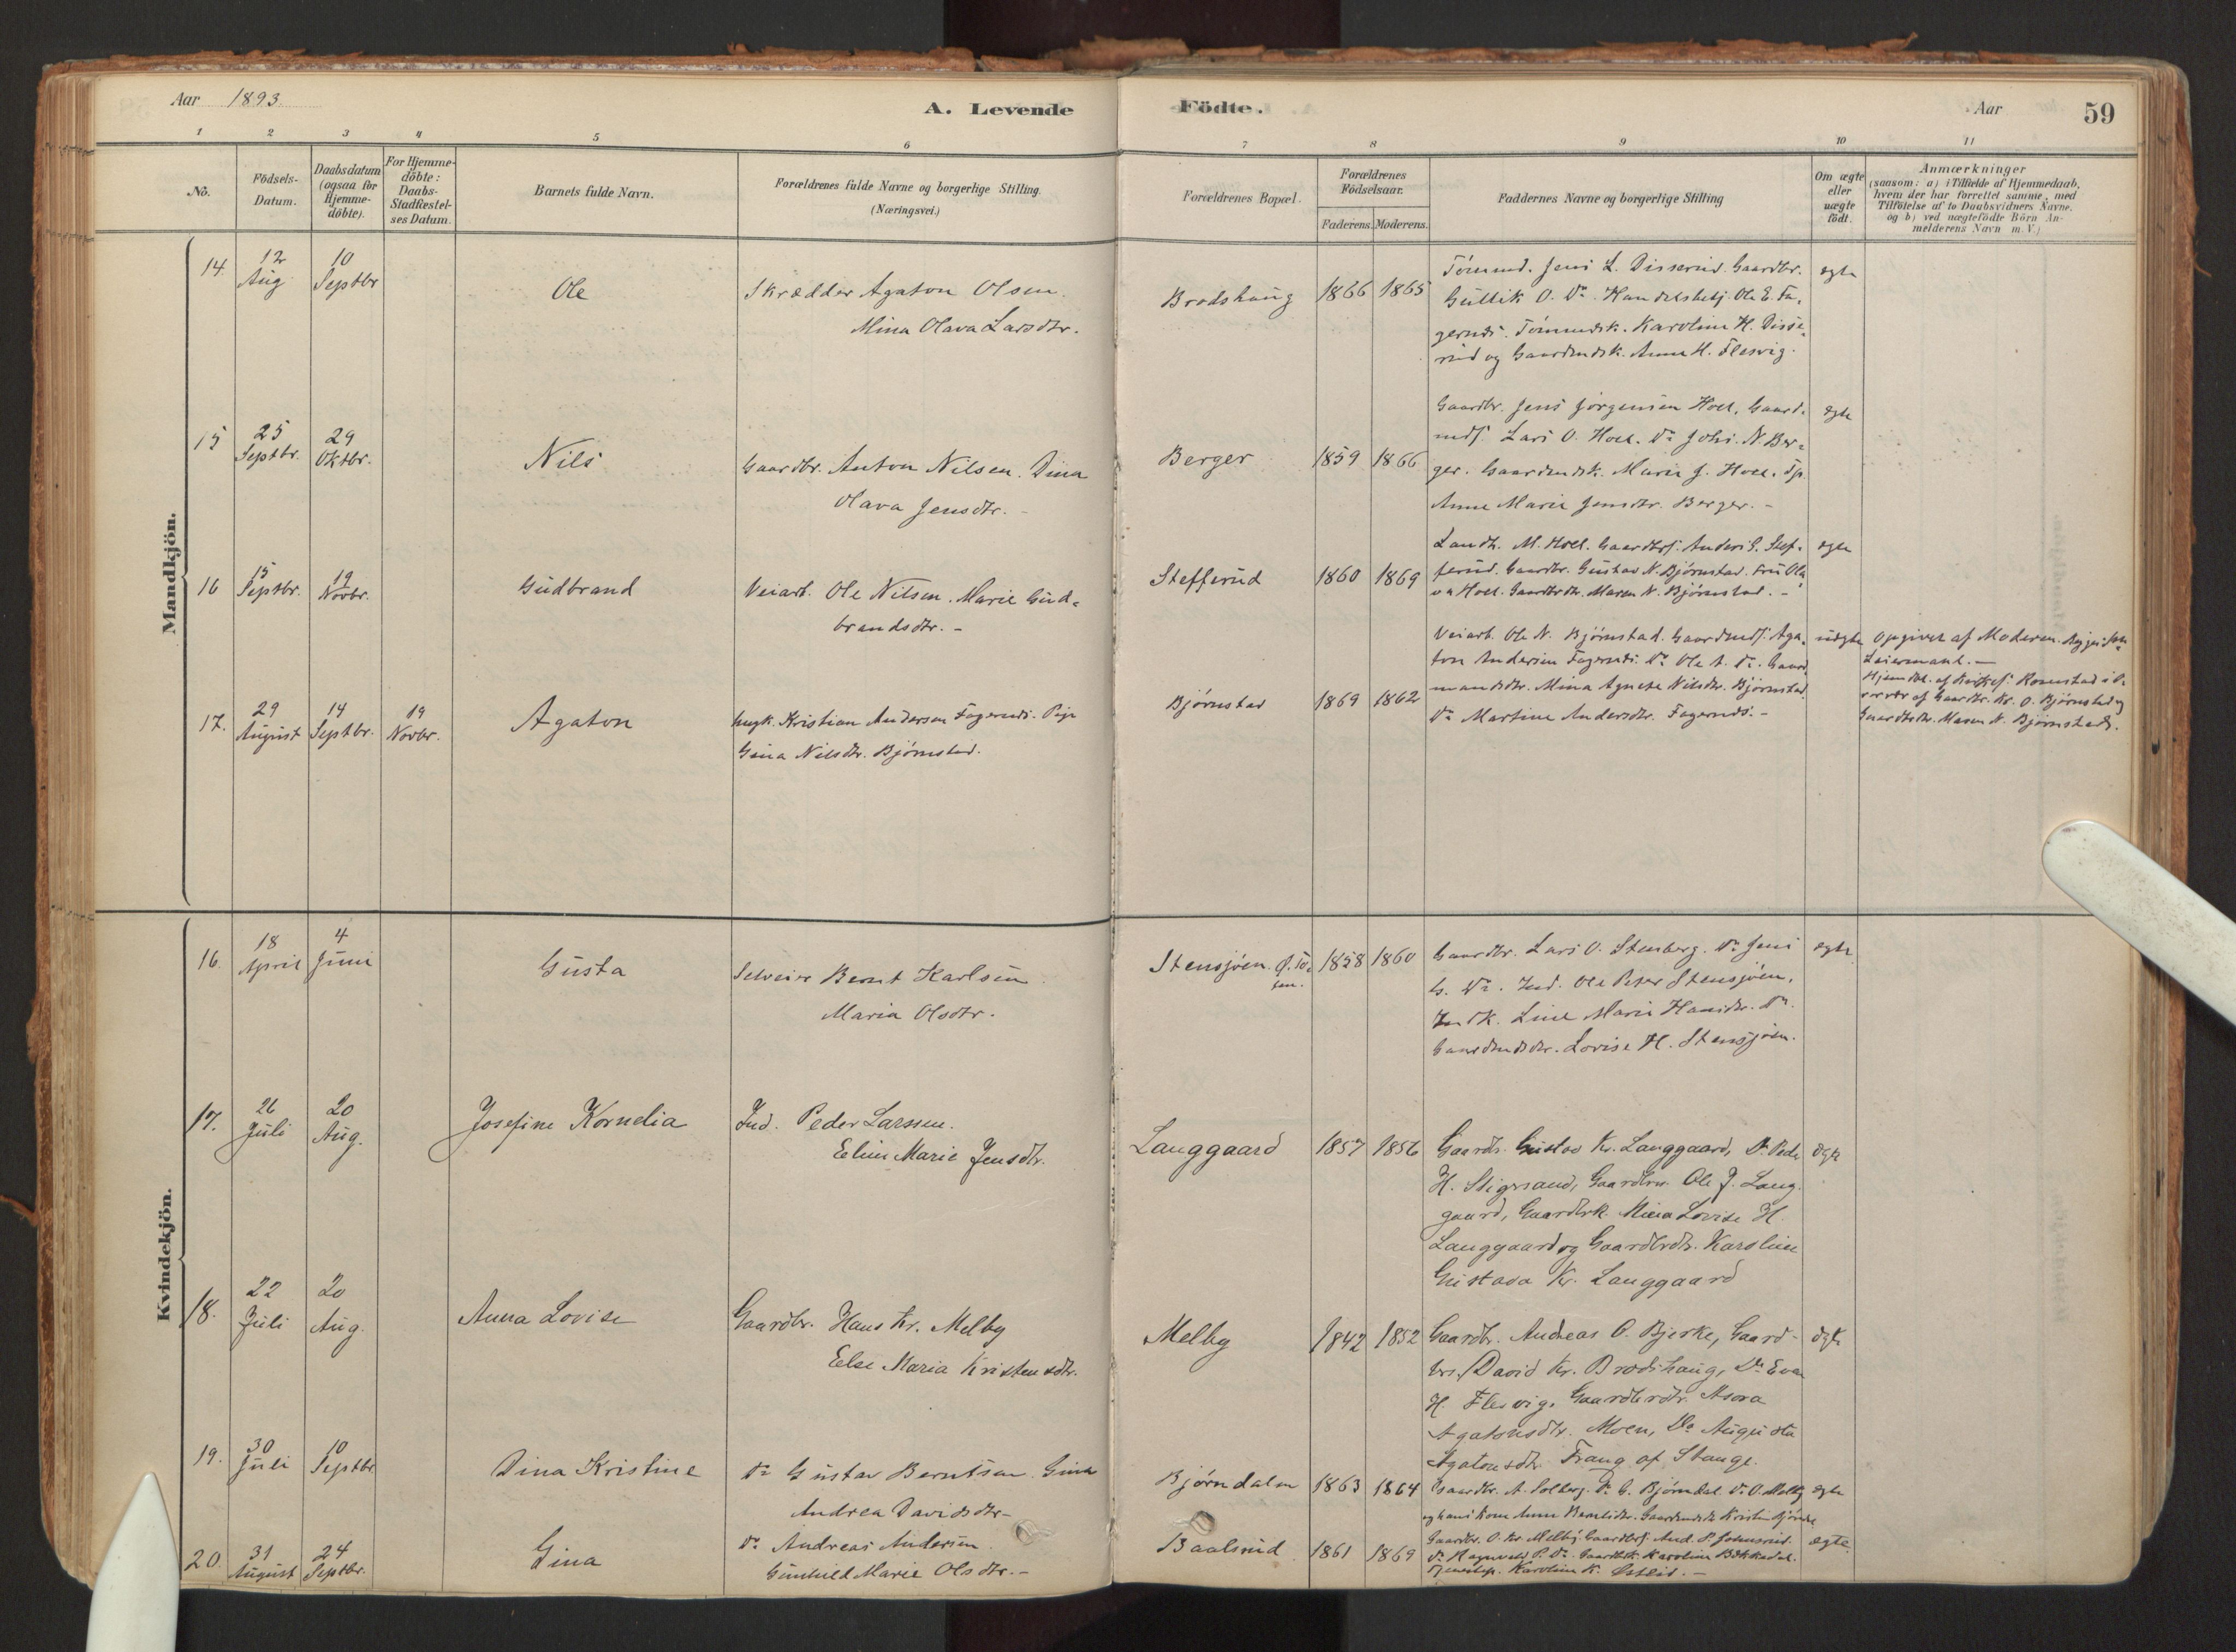 Aar 1893.
A. Levende Födte.
Aar
59
1 2 3 4 5 6 7 8 9 10 11
No.
Födsels-
Datum.
Daabsdatum
(ogsaa for
Hjemme-
döbte).
For Hjemme-
döbte:
Daabs-
Stadfæstel-
ses Datum.
Barnets fulde Navn.
Forældrenes fulde Navne og borgerlige Stilling.
(Næringsvei.)
Forældrenes Bopæl.
Forældrenes
Födselsaar.
Faderens. Moderens.
Faddernes Navne og borgerlige Stilling
Om ægte
eller
uægte
födt.
Anmærkninger
(saasom: a) i Tilfælde af Hjemmedaab,
hvem der har forrettet samme, med
Tilföielse af to Daabsvidners Navne.
og b) ved uægtefödte Börn An-
melderens Navn m. V.)
Mandkjön.
14.
12
Aug
10
Septbr
Ole
Skrædder Agaton Olsen.
Mina Olava Larsdtr.
Brodshaug
1866 1865
Tömmd. Jens L. Disserud. Gaardbr.
Gullik O. Do. Handelsbetj. Ole E. Fa-
gernds. Tömmdsk. Karoline H. Disse-
rud og Gaardmdsk. Anne H. Flesvig.
egte
15
25
Septbr.
29
Oktbr.
Nils
Gaardbr. Anton Nilsen. Dina
Olava Jensdtr. -
Berger
1859 1866
Gaardbr. Jens Jørgensen Hoel. Gaard-
mds. Lars O. Hoel. Do Johs. N. Ber-
ger. Gaardmdsk. Marie J. Hoel. Tjp.
Anne Marie Jensdtr. Berger. -
egte
16
15
Septbr.
19
Novbr.
Gudbrand
Veiarb. Ole Nilsen. Marie Gud-
brandsdtr. -
Stefferud
1860 1869
Landh. M. Hoel. Gaardbrs. Anders G. Stef-
ferud. Gaardbr. Gustav N. Bjørnstad. Fru Ola-
va Hoel. Gaardbrdtr. Maren N. Bjørnstad. -
egte
17.
29
August
14
Septbr.
19
Novbr.
Agaton
Ungk. Kristian Andersen Fagernds. Pige
Gina Nilsdtr. Bjørnstad.
Bjørnstad
1869 1862
Veiarb. Ole N. Bjørnstad. Gaardmds. Aga-
ton Andersen Fagernds. Do Ole A. Do. Gaard-
mandsdtr. Mina Agnete Nilsdtr. Bjørnstad.
Do Martine Andersdtr. Fagernds. -
uægte
Opgivet af Moderen.
Leiermaal. -
Hjemdbt. af Rosenstad i
af Gaardbr. Kr. O. Bjørnstad og
Gaardbrdtr. Maren N. Bjørnstad.
Kvindekjön.
16.
18
April
4
Juni
Gusta
Selveier Bernt Karlsen
Maria Olsdtr.
Stensjøen.
1858 1860
Gaardbr. Lars O. Stenberg. Do Jens
Do. Ind. Ole Peter Stensjøen.
Indk. Line Marie Hansdtr. Do.
Gaardmdsdtr. Lovise H. Stensjøen.
egte
17.
26
Juli
20
Aug.
Josefine Kornelia
Ind. Peder Larssen.
Eline Marie Jensdtr.
Langgaard
1857 1856
Gaardb. Gustav Kr. Langgaard, Do Peder
H. Stigersand, Gaardbrs. Ole J. Lang-
gaard, Gaardbrk. Mina Lovise H.
Langgaard og Gaardbrdtr. Karoline
Gustava Kr. Langgaard
egte
18.
22
Juli
20
Aug.
Anna Lovise
Gaardbr. Hans Kr. Melby
Else Maria Kristensdtr.
Melby
1842 1852
Gaardb. Andreas O. Bjerke, Gaard-
brs. David Kr. Brodshaug, Do Even
H. Flesvig. Gaardbrdtr. Asora
Agatonsdtr. Moen, Do Augusta
Agatonsdtr. Frang af Stange.
egte
19.
30
Juli
10
Septbr
Dina Kristine
Do Gustav Berntsen. Gina
Andrea Davidsdtr -
Bjørndalen
1863 1864
Gaardbr. A. Solberg. Do G. Bjørndal. Do O. Melby
og hans Kone Anne
egte
20.
31
August
24
Septbr.
Gina
Do Andreas Andersen
Gunhild Marie Olsdtr. -
Baalsrud
1861 1869
Gaardbr. O. Kr. Melby. Gaardbrs. And. P.
Do Do. Gaardbrk. Karoline Bekkedal.
Tjenestep. Karoline K.
egte.